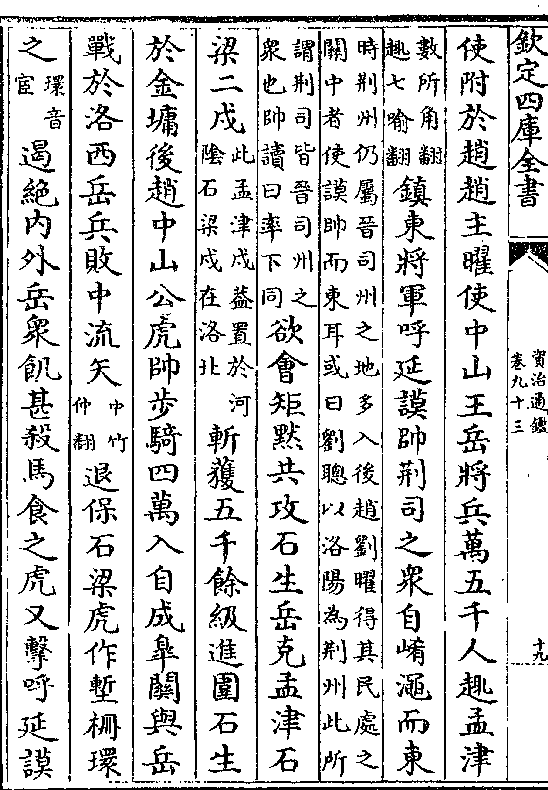 欽定四庫全書
資治通鑑
卷九十三
十九
使附於趙趙主曜使中山王岳將兵萬五千人趣孟津
數所角翻
趣七喻翻
鎮東將軍呼延謨帥荆司之衆自崤澠而東
時荆州仍屬晉司州之地多入後趙劉曜得其民處之
關中者使謨帥而東耳或曰劉聰以洛陽為荆州此所
謂荆司皆晉司州之
衆也帥讀曰率下同
欲會矩默共攻石生岳克孟津石
梁二戍
此孟津戍葢置於河
隂石梁戍在洛北
斬獲五千餘級進圍石生
於金墉後趙中山公虎帥步騎四萬入自成臯關與岳
戰於洛西岳兵敗中流矢
中竹
仲翻
退保石梁虎作塹柵環
之
環音
宦
遏絶内外岳衆飢甚殺馬食之虎又擊呼延謨